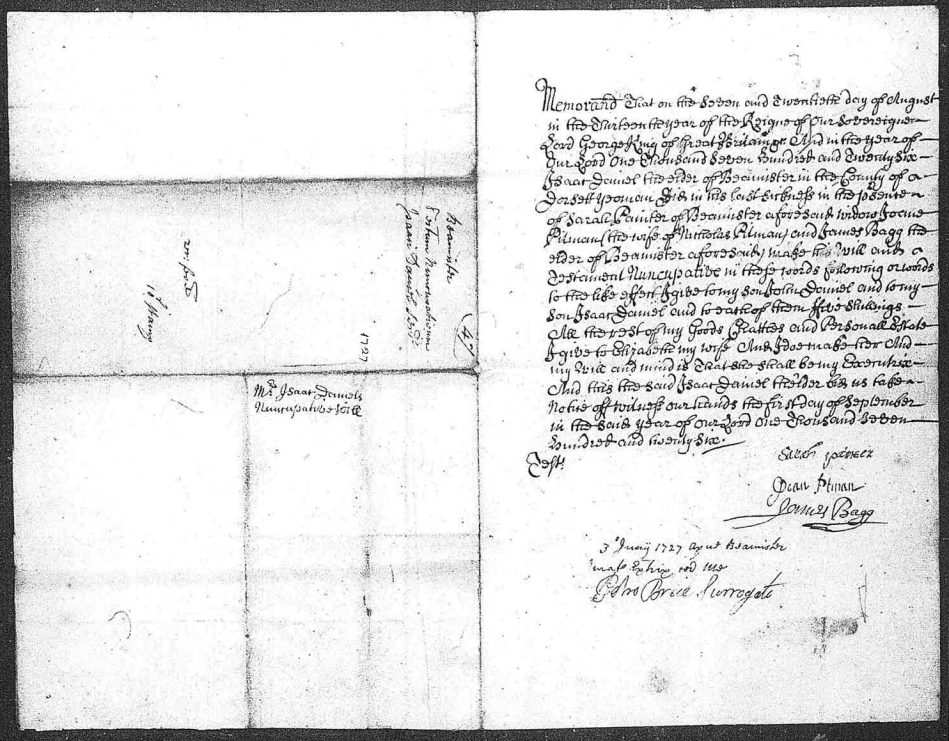 Memorand That on the Seven and Twentieth day of August
in the Thirteenth year of the Reigne of our Sovereigne
Lord George King of Great Britaine &c And in the year of
Our Lord One Thousand Seven hundred and Twenty Six
Isaac Daniel the elder of Beamister in the County of
Dorsett yeoman Did in his last Sickness in the psence
of Sarah Painter of Beamister aforesaid widow Joane
Pitman (the wife of Nicholas Pitman) and James Bagg the
elder of Beamister aforesaid make his Will and
Testament Nuncupative in these words following or words
to the like effect I give to my son John Daniel and to my
son Isaac Daniel and to each of them ffive shillings
All the rest of my Goods Chattles and Personall Estate
I give to Elizabeth my wife And I doe make her And
my Will and mind is That she shall be my Executrix
And this the said Isaac Daniel the elder bid us take
Notice off Witness our hands the first day of September
in the said year of our Lord One Thousand Seven
hundred and twenty Six.
Test:
Sarah painter
Joan Pitman
James Bagg
3 1727 apud Beamister
Jurat Extrix cor me
Brice Surrogate
Beamister
Testum Nuncupativum
Isaaci Daniel Sen
47
1727
Mr Isaac Daniels
Nuncupative Will